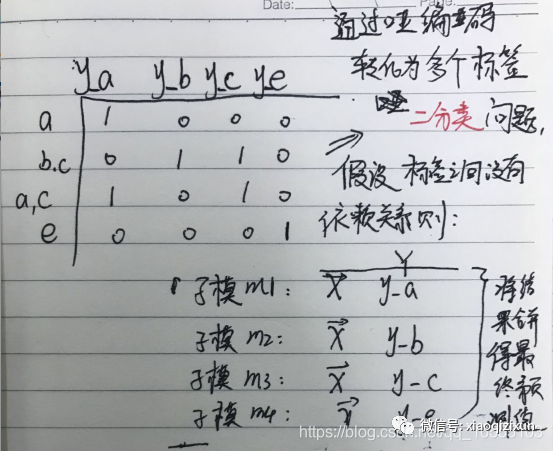 Date:
Page:
通过哑编码
转化为多个标签
二分类问题,
假设标签之间没有
依赖关系则:
y_a y_b y_c y_e
a 1 0 0 0
b.c 0 1 1 0
a,c 1 0 1 0
e 0 0 0 1
Y
子模m1: X y_a
子模m2: X y_b
子模m3: X y_c
子模m4: X y_e
将结
果合併
得最
终预
测值
微信号: xiaoqizixun
https://blog.csdn.net/qq_16633103